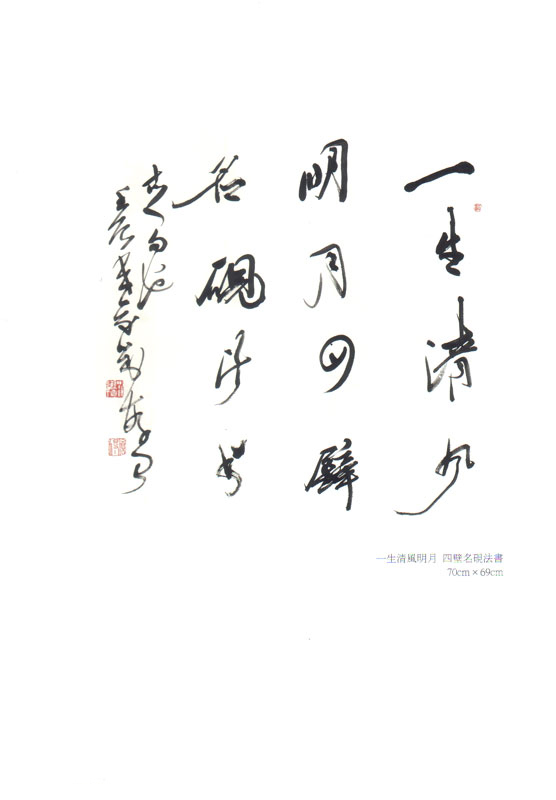 一生清風
明月四壁
名硯法書
一生清風明月 四壁名硯法書
70cm × 69cm